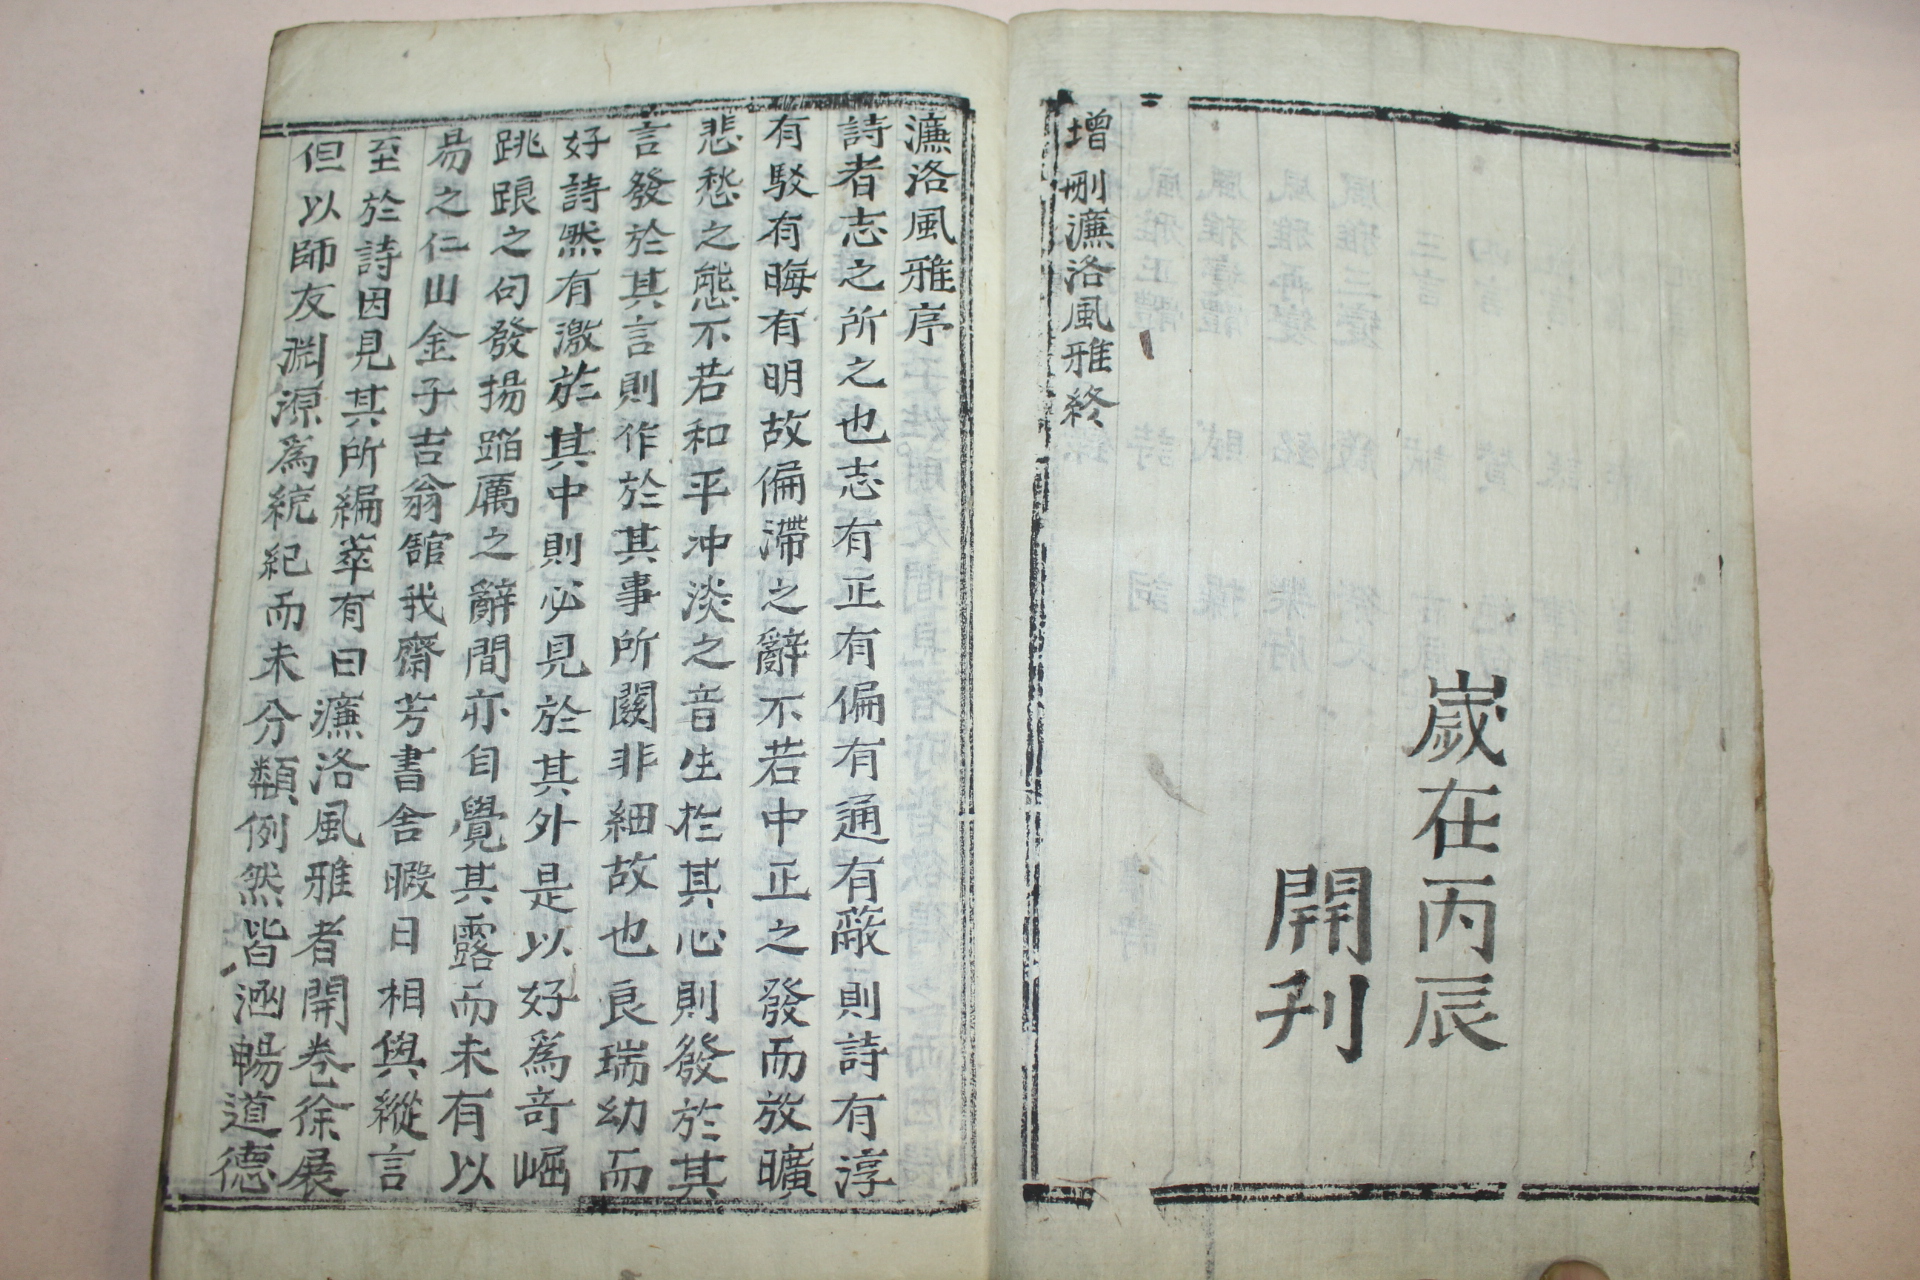 歲在丙辰
開刋
增刪濂洛風雅終
濂洛風雅序
詩者志之所之也志有正有偏有通有蔽則詩有淳
有駁有晦有明故偏滯之辭不若中正之發而放曠
悲愁之態不若和平冲淡之音生於其志則發於其
言發於其言則作於其事所關非細故也良瑞幼而
好詩然有激於其中則必見於其外是以好爲奇崛
跳踉之句發揚蹈厲之辭間亦自覺其露而未有以
易之仁山金子吉翁舘我齋芳書舍暇日相與縱言
至於詩因見其所編萃有曰濂洛風雅者開卷徐展
但以師友淵源爲統紀而未分類例然皆涵暢道德